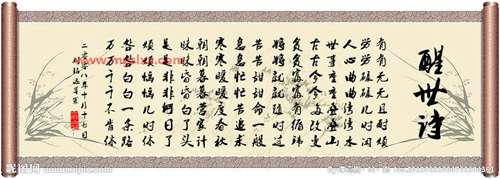 醒世诗
有有无无且耐烦
劳劳碌碌几时闲
人心曲曲湾湾水
世事重重叠叠山
古古今今多改变
贫贫富富有循环
将将就就随时过
苦苦甜甜命一般
急急忙忙苦追求
寒寒暖暖度春秋
朝朝暮暮营家计
昧昧昏昏白了头
是是非非何日了
烦烦恼恼几时休
明明白白一条路
万万千千不肯修
二零零八年十月十七日
昵图网